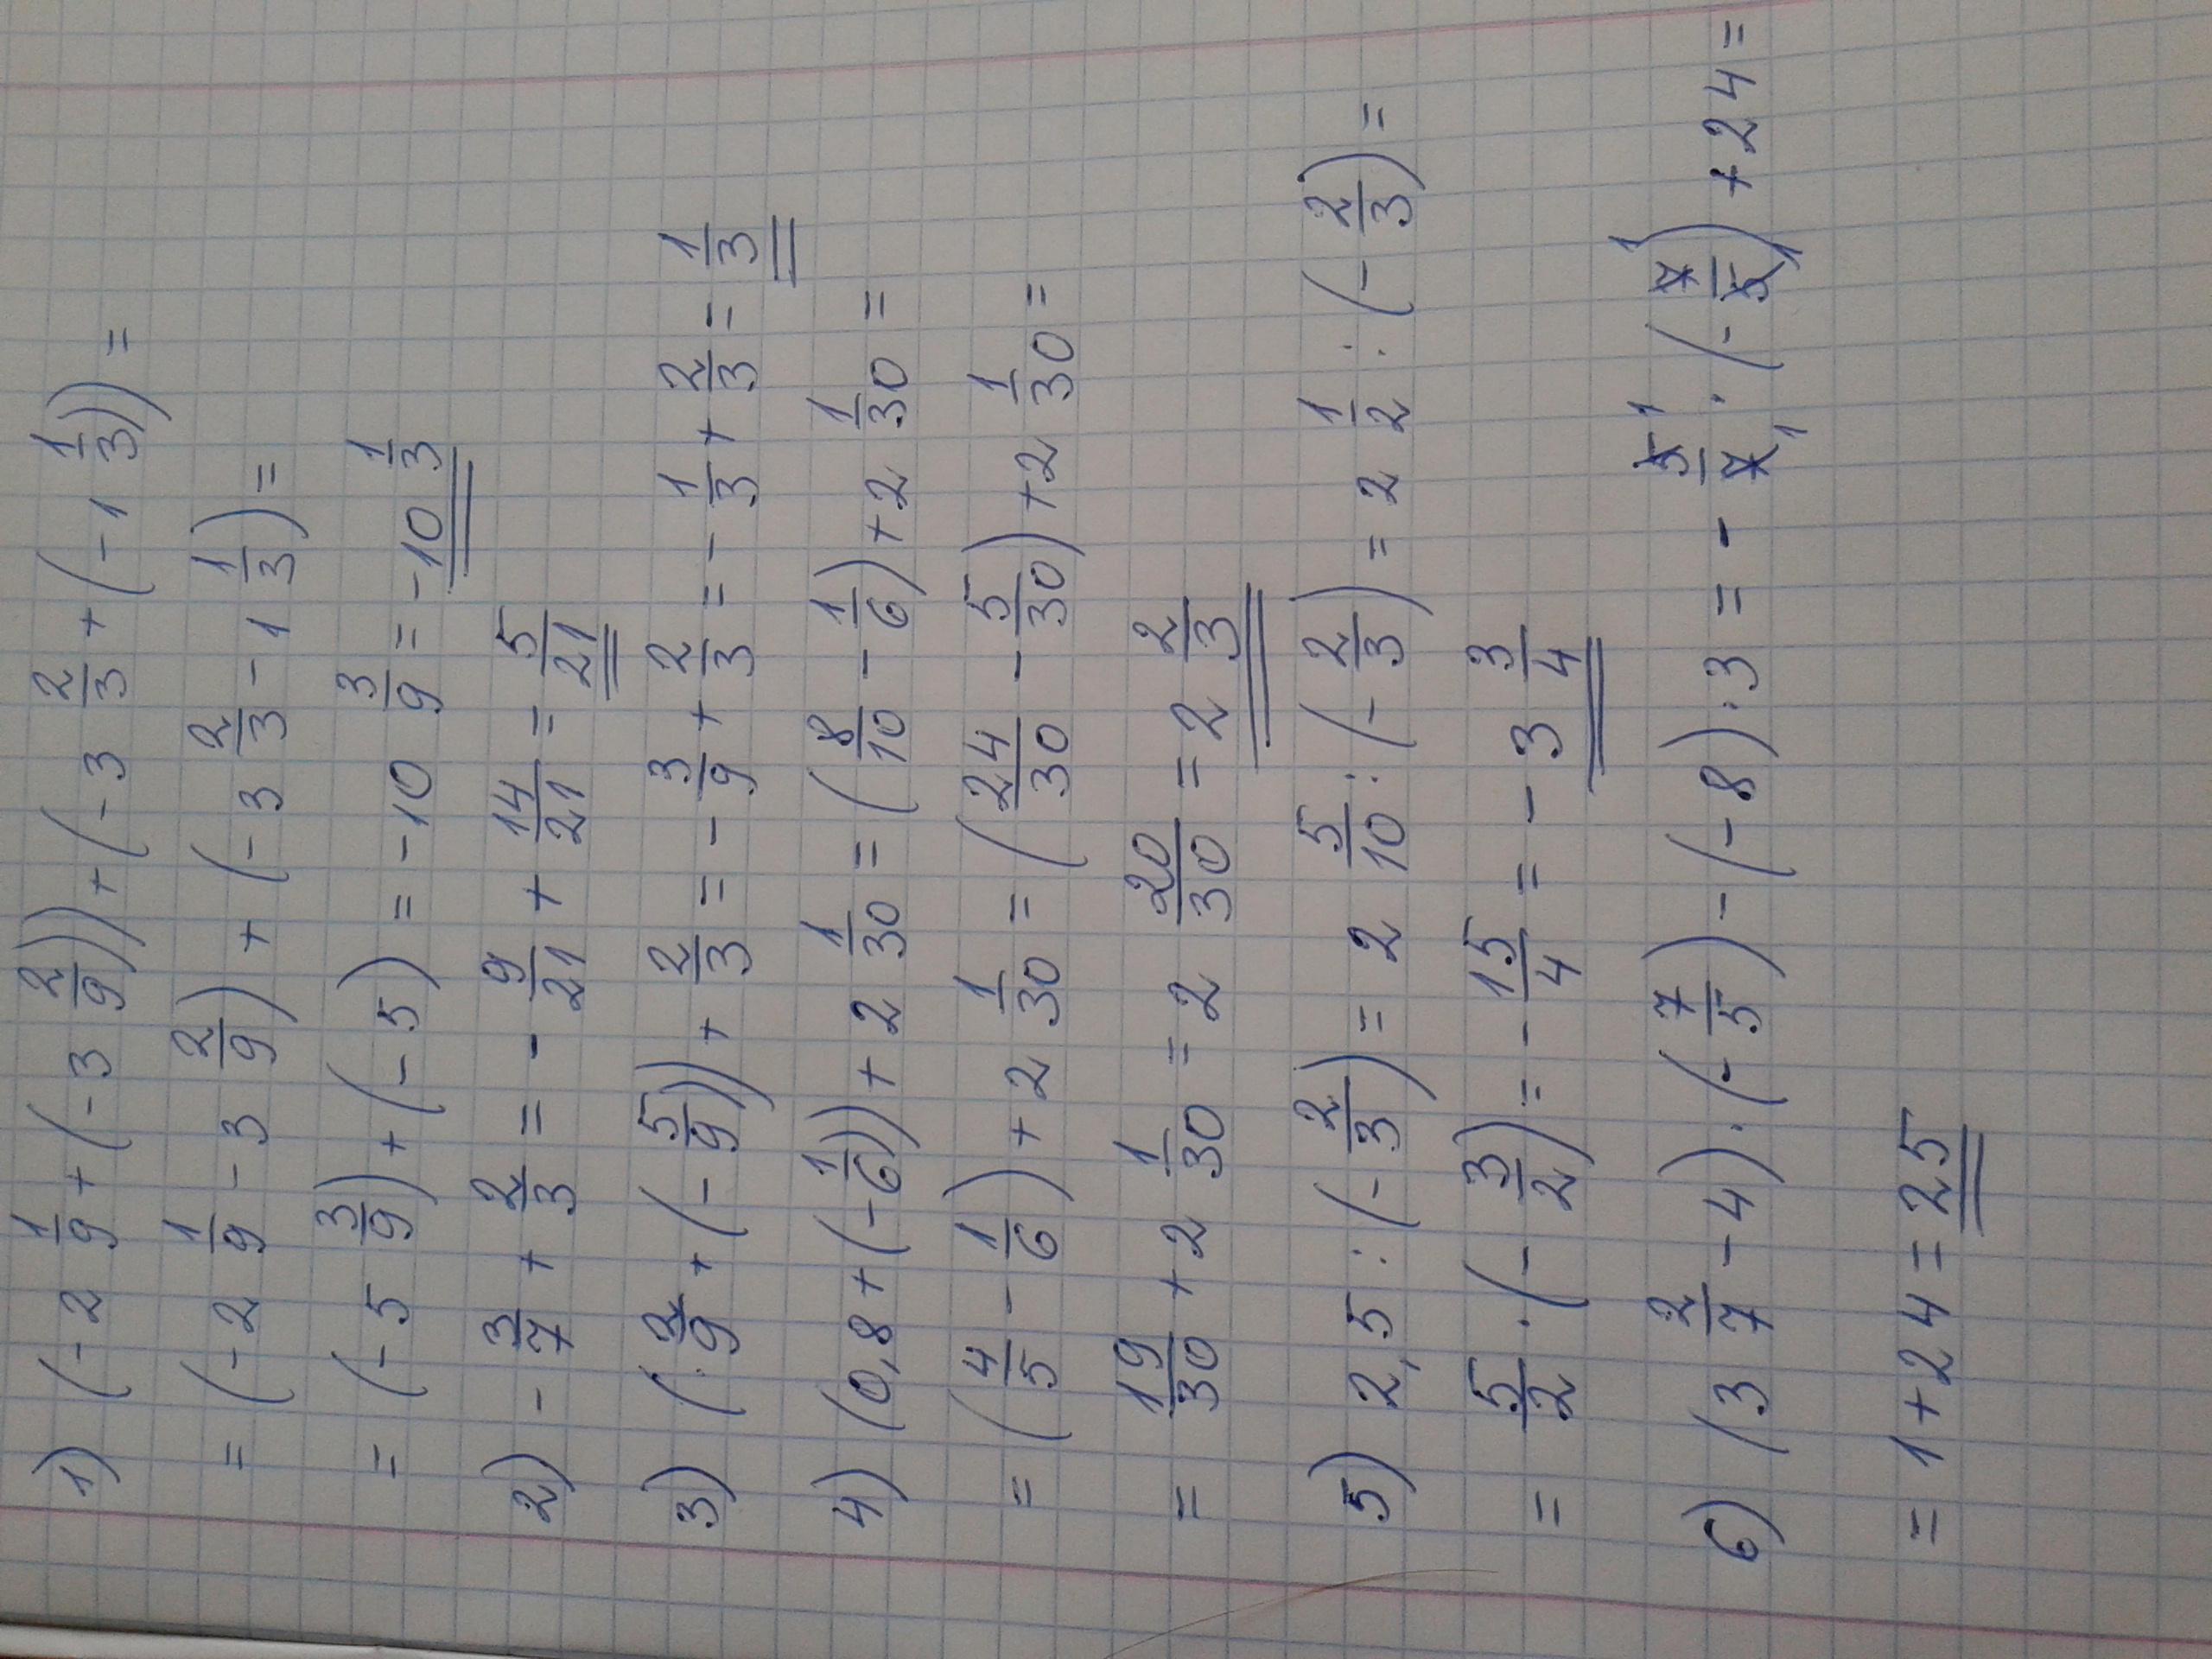 1) (-2 1/9 + (-3 2/9)) + (-3 2/3 + (-1 1/3)) =
= (-2 1/9 - 3 2/9) + (-3 2/3 - 1 1/3) =
= (-5 3/9) + (-5) = -10 3/9 = -10 1/3
2) - 3/7 + 2/3 = - 9/21 + 14/21 = 5/21
3) (2/9 + (- 5/9)) + 2/3 = - 3/9 + 2/3 = - 1/3 + 2/3 = 1/3
4) (0,8 + (- 1/6)) + 2 1/30 = (8/10 - 1/6) + 2 1/30 =
= (4/5 - 1/6) + 2 1/30 = (24/30 - 5/30) + 2 1/30 =
= 19/30 + 2 1/30 = 2 20/30 = 2 2/3
5) 2,5 : (- 2/3) = 2 5/10 : (- 2/3) = 2 1/2 : (- 2/3) =
= 5/2 · (- 3/2) = - 15/4 = - 3 3/4
6) (3 2/7 - 4) · (- 7/5) - (-8) · 3 = - 5/7 · (- 7/5) + 24 =
= 1 + 24 = 25